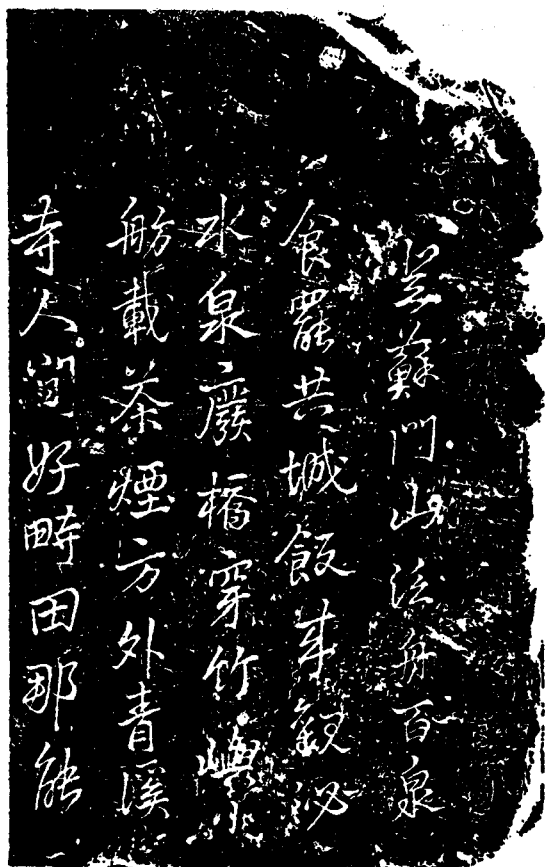 登蘇門山泛舟百泉
食罷共城飯來觀泌
水泉廢橋穿竹嶼小
舫載茶煙方外青溪
寺人間好疇田那能